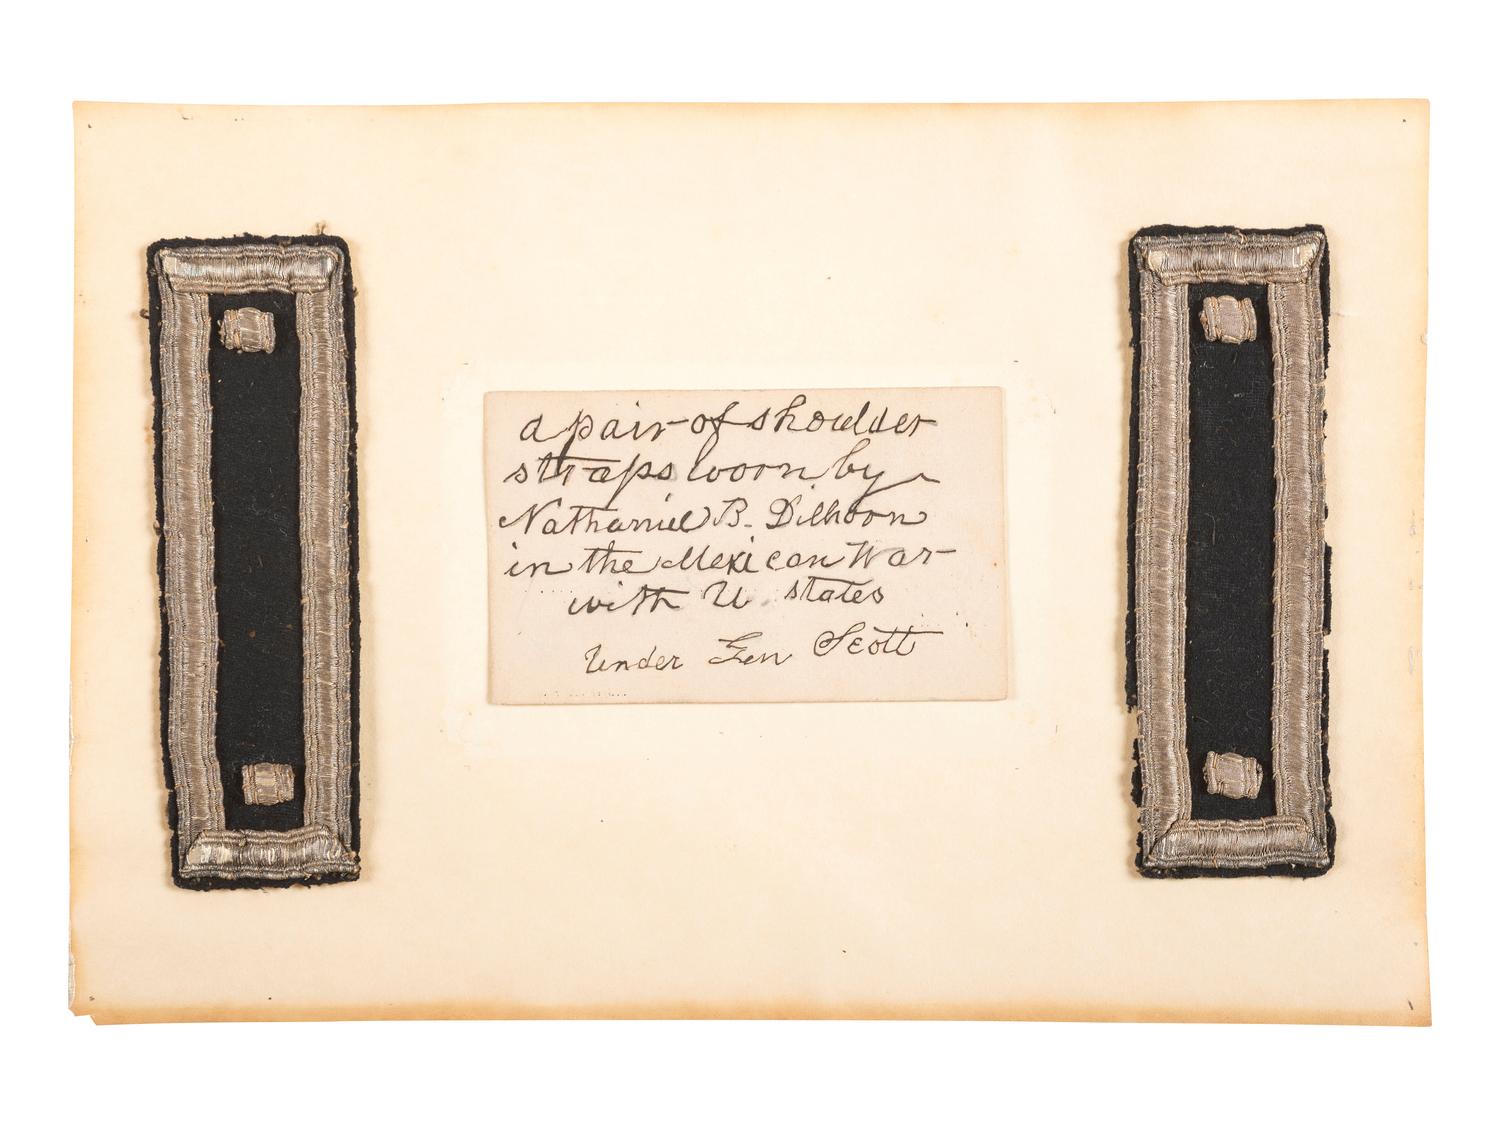 a pair of shoulder
straps worn by
Nathaniel B. Dilhorn
in the Mexican War
with U states
Under Gen Scott